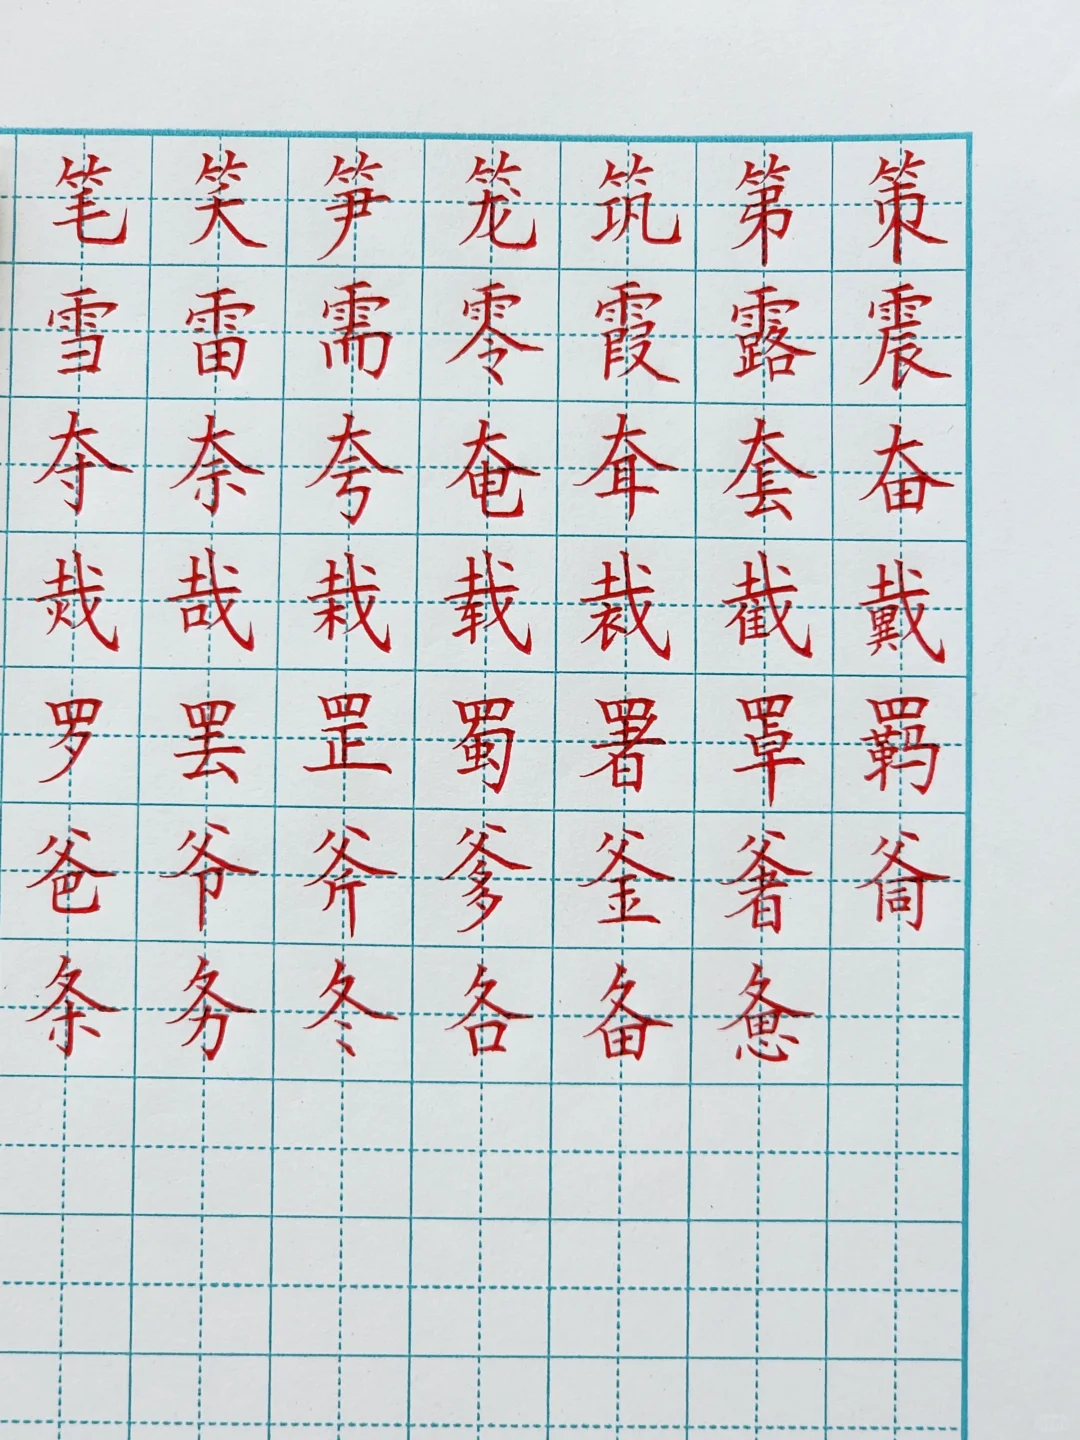 笔笑笋笼筑第策
雪雷需零霞露震
夺奈夸奄耷套奋
烖哉栽载裁截戴
罗罢罡蜀署罩羁
爸爷斧爹釜㸙
条务冬各备惫